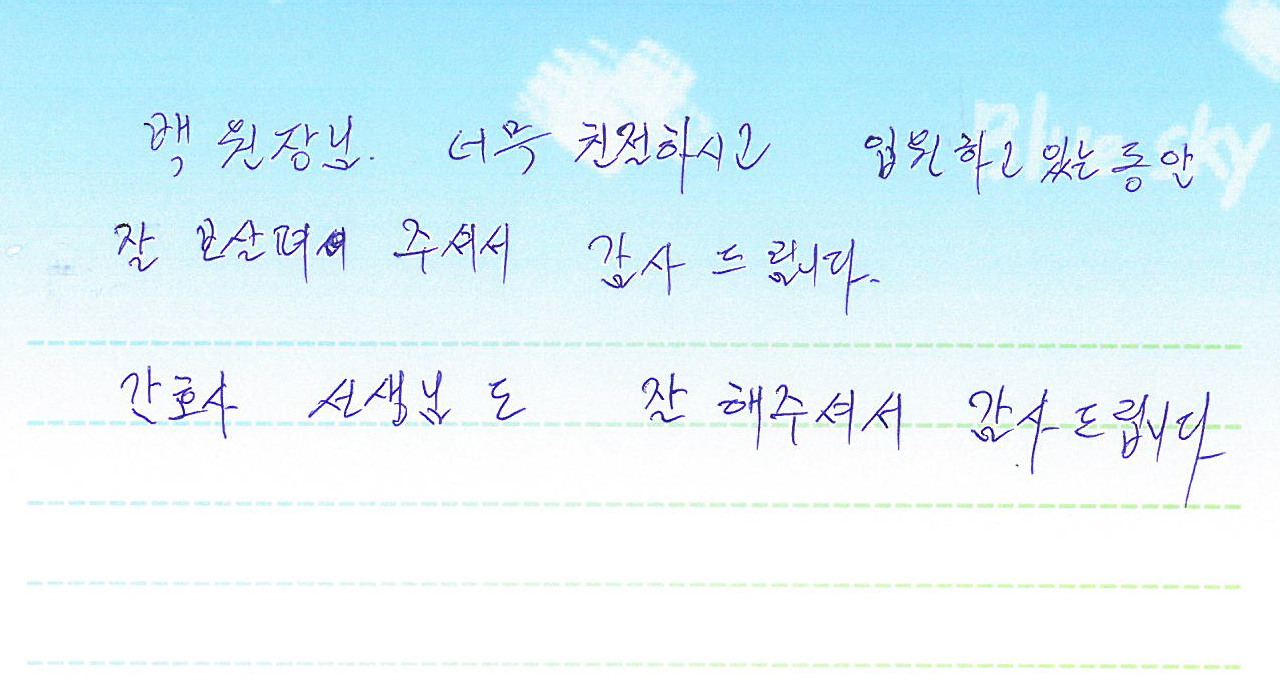 Blue sky
백 원장님. 너무 친절하시고 입원하고 있는 동안
잘 보살펴 주셔서 감사 드립니다.
간호사 선생님 도 잘 해주셔서 감사드립니다